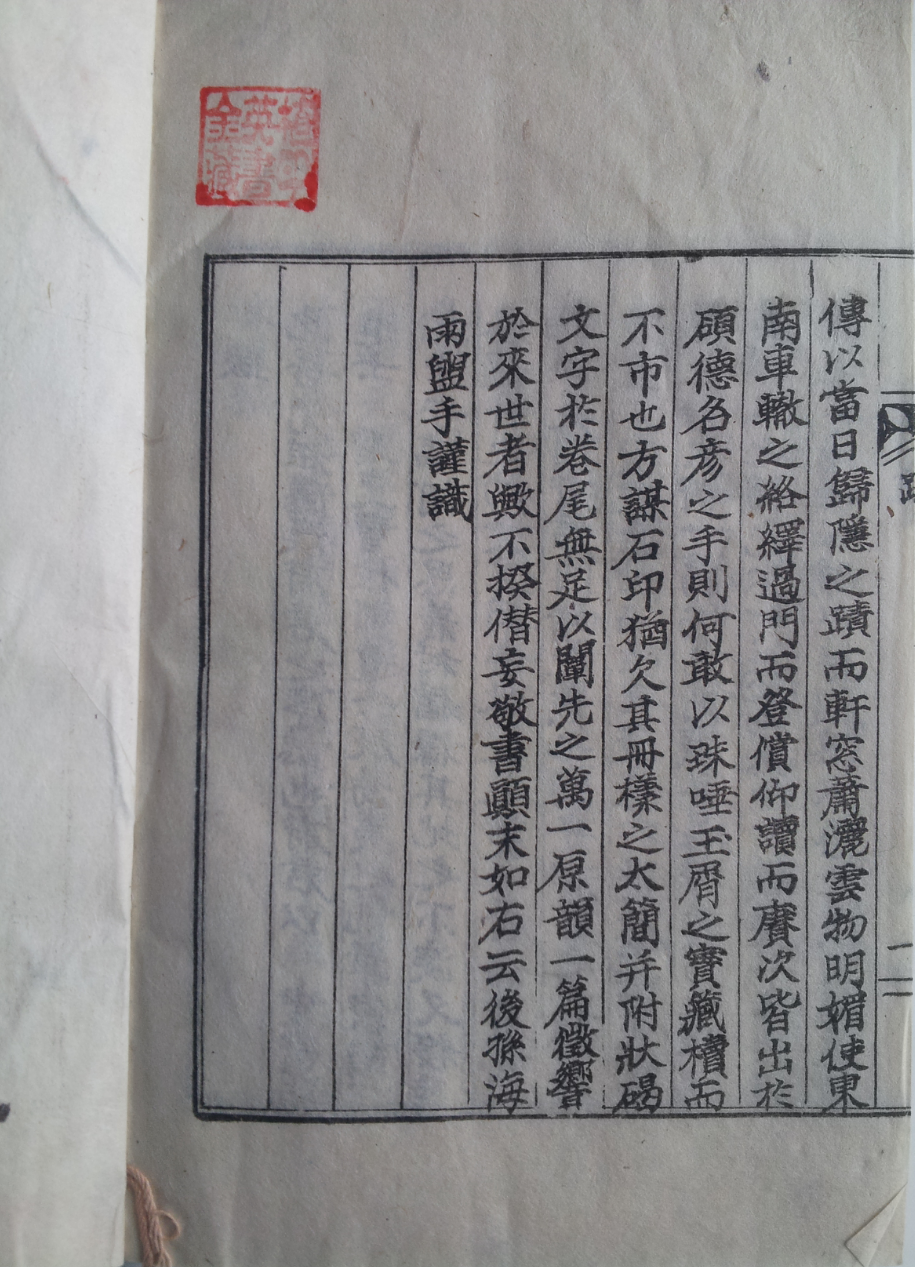 傳以當日歸隱之蹟而軒窓蕭灑雲物明媚使東
南車轍之絡繹過門而登償仰讀而賡次皆出於
碩德名彦之手則何敢以珠唾玉屑之寶藏櫝而
不市也方謀石印猶欠其冊㨾之太簡并附狀碣
文字於卷尾無足以闡先之萬一原韻一篇徵響
於來世者歟不揆僭妄敬書顚末如右云後孫海
雨盥手謹識
英書